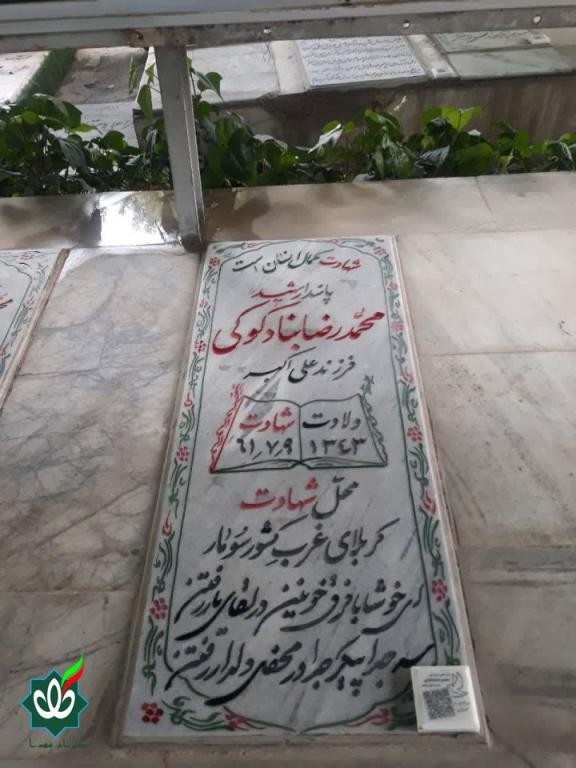 شهادت کمال انسان است
پاسدار شهید
محمدرضا بنادکوکی
فرزند علی اکبر
ولادت شهادت
۱۳۴۳ ۶۱٫۷٫۹
محل شهادت
کربلای غرب کشور سومار
ای خوشا با فرق خونین در لقای یار رفتن
سر جدا پیکر جدا در محفل دلدار رفتن